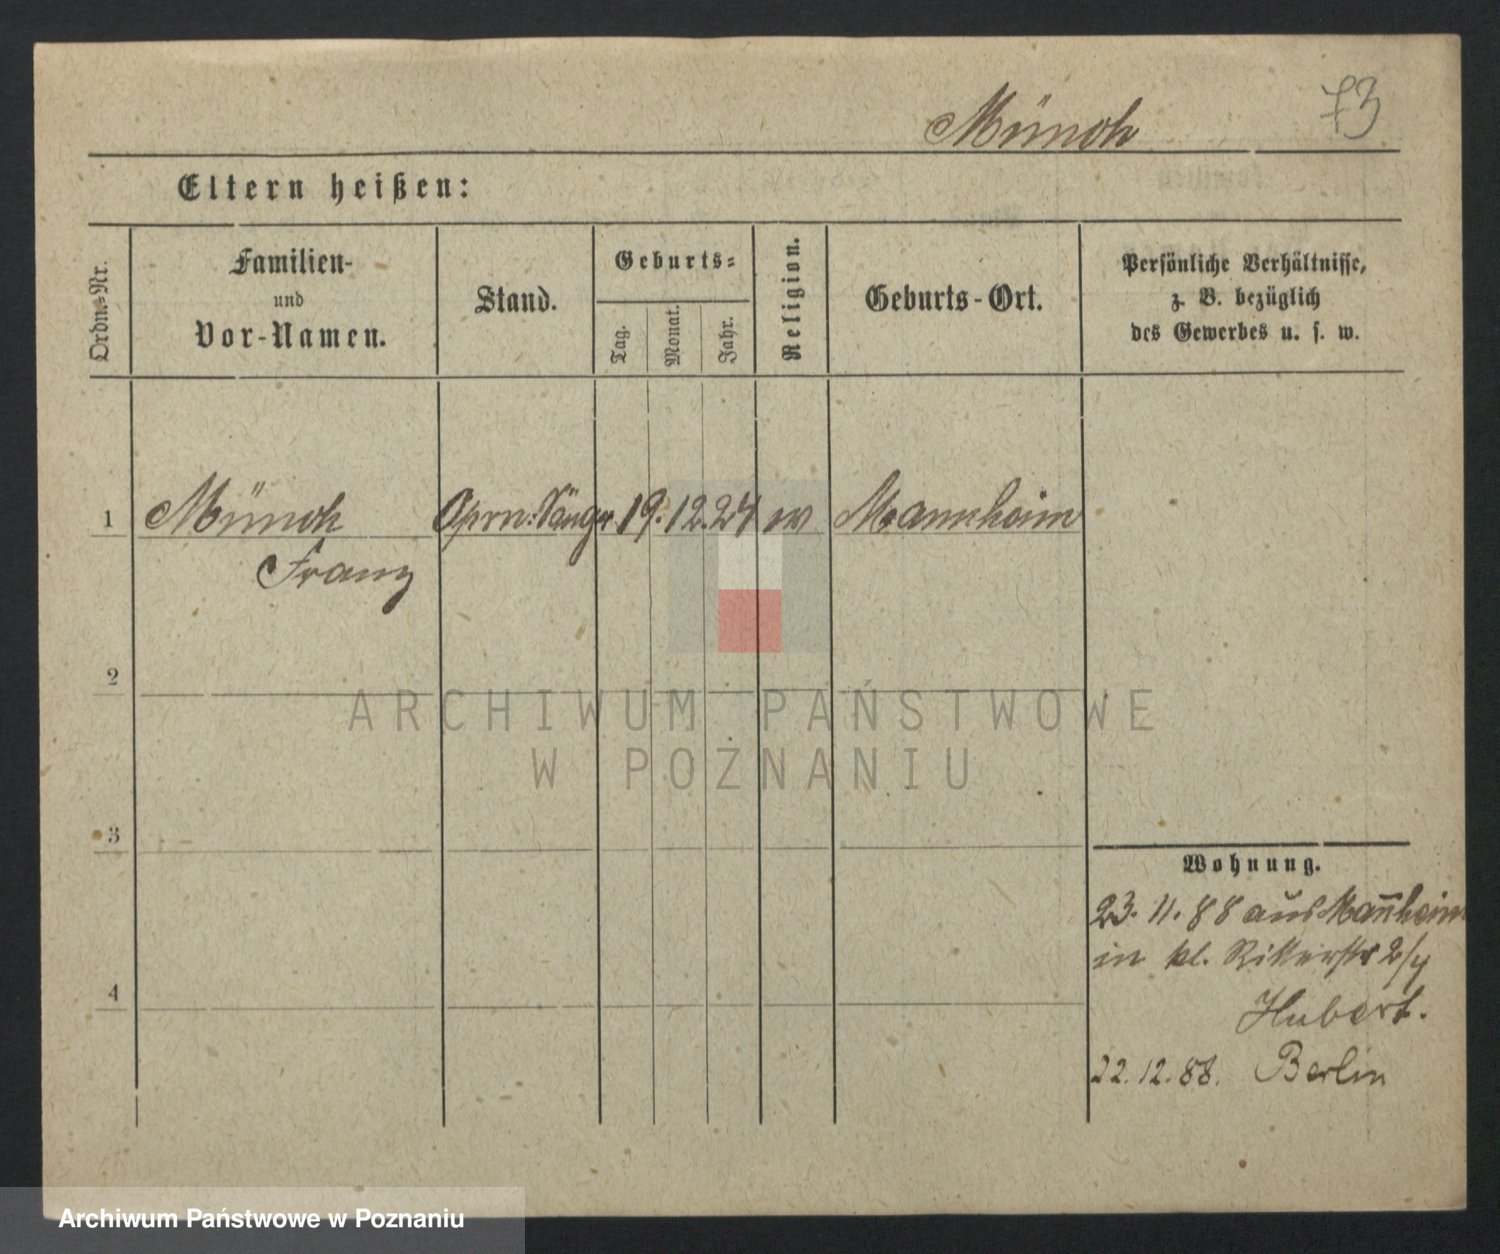 Münch
73
Eltern heißen:
Ordn.-Nr.
Familien-
und
Vor-Namen.
Stand.
Geburts-
Tag.
Monat.
Jahr.
Religion.
Geburts-Ort.
Persönliche Verhältnisse,
z. B. bezüglich
des Gewerbes u. s. w.
1 Münch Opern: Sänger 19. 12. 24 Mannheim
Franz
2
3
4
Wohnung.
23. 11. 88 aus Mannheim
in kl. Ritterstr
Hubert.
22. 12. 88. Berlin
ARCHIWUM PAŃSTWOWE
W POZNANIU
Archiwum Państwowe w Poznaniu